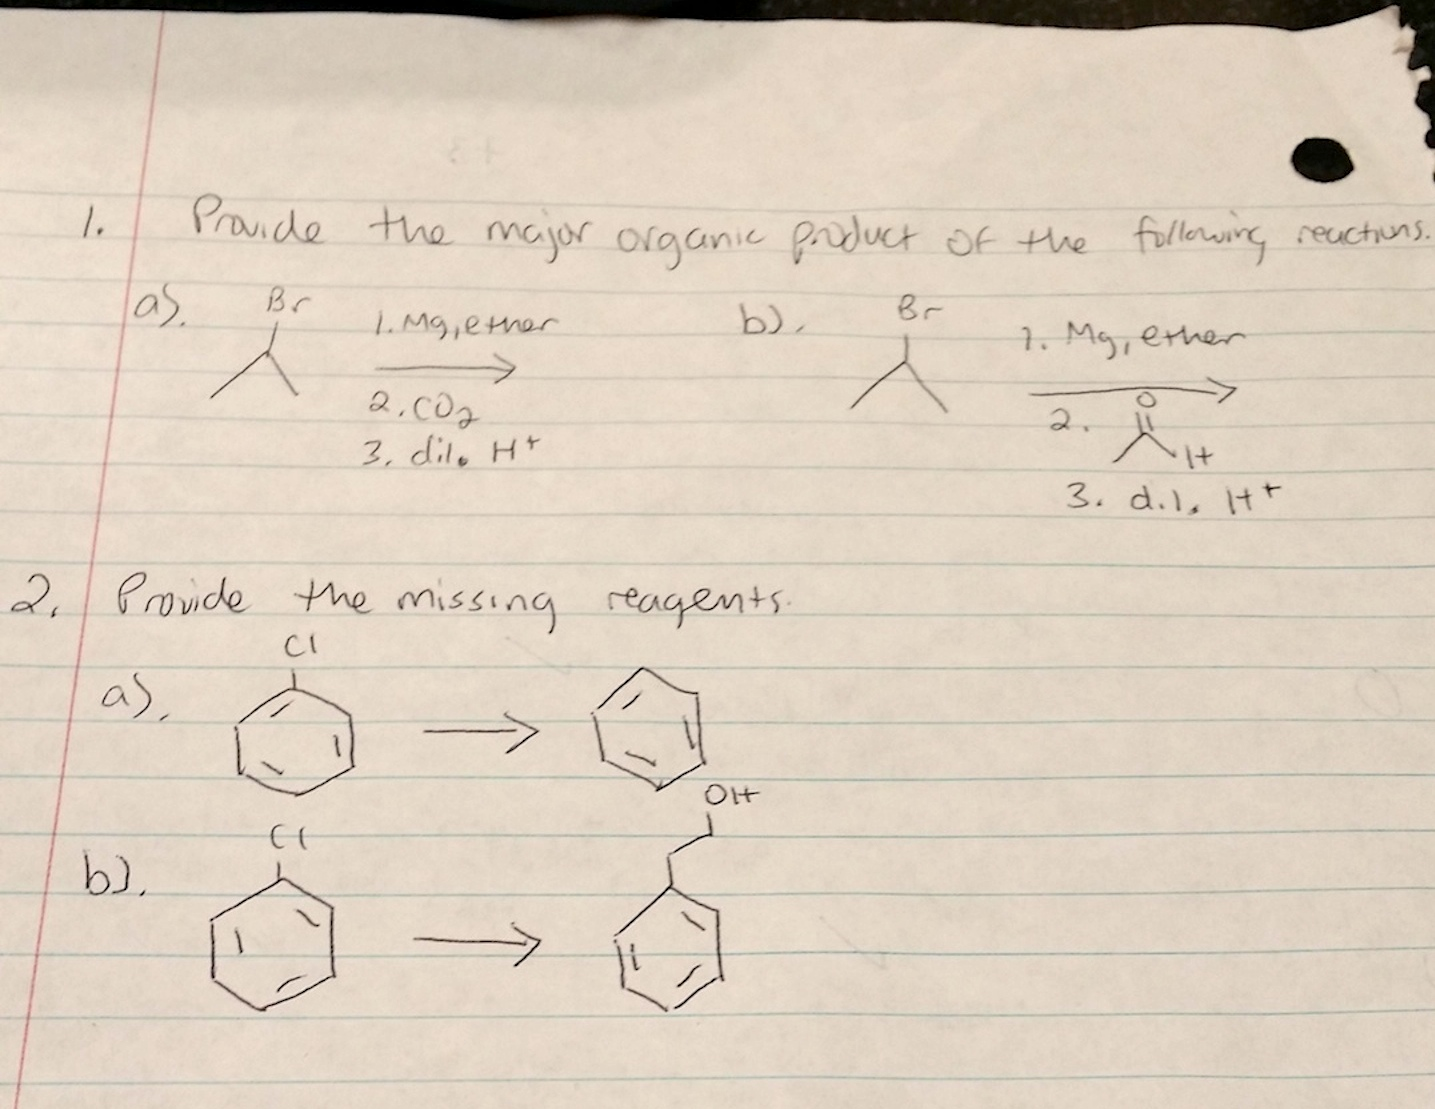 1. Provide the major organic product of the following reactions.
a). Br 1. Mg, ether b). Br 1. Mg, ether
2. CO2 2. O H
3. dil. H+ 3. dil. H+
2. Provide the missing reagents.
Cl
a).
OH
Cl
b).